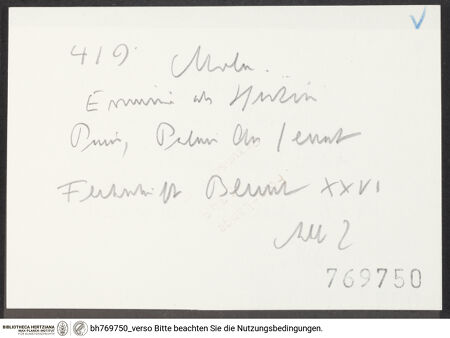 419.
Mola.
Erminia als Hirtin
Paris, Palais du Senat
Festschrift Bernt XXVI
Abb 2
769750
BIBLIOTHECA HERTZIANA
MAX-PLANCK-INSTITUT
FÜR KUNSTGESCHICHTE
bh769750_verso Bitte beachten Sie die Nutzungsbedingungen.